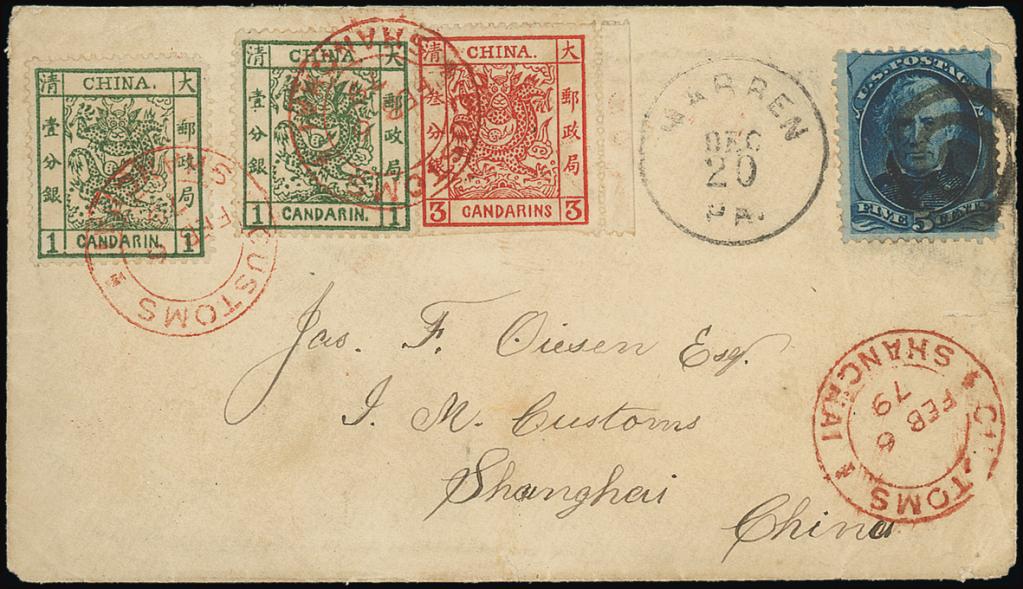 CHINA.
大清
郵政局
壹分銀
1 CANDARIN. 1
CHINA
大清
郵政局
壹分銀
1 CANDARIN. 1
CHINA.
大清
郵政局
叁分銀
3 CANDARINS 3
CUSTOMS
SHANGHAI
WARREN
DEC
20
PA.
U.S. POSTAGE
FIVE 5 CENTS
Jas. F. Oiesen Esq.
I. M. Customs
Shanghai
China
SHANGHAI
FEB 6
79
TOMS